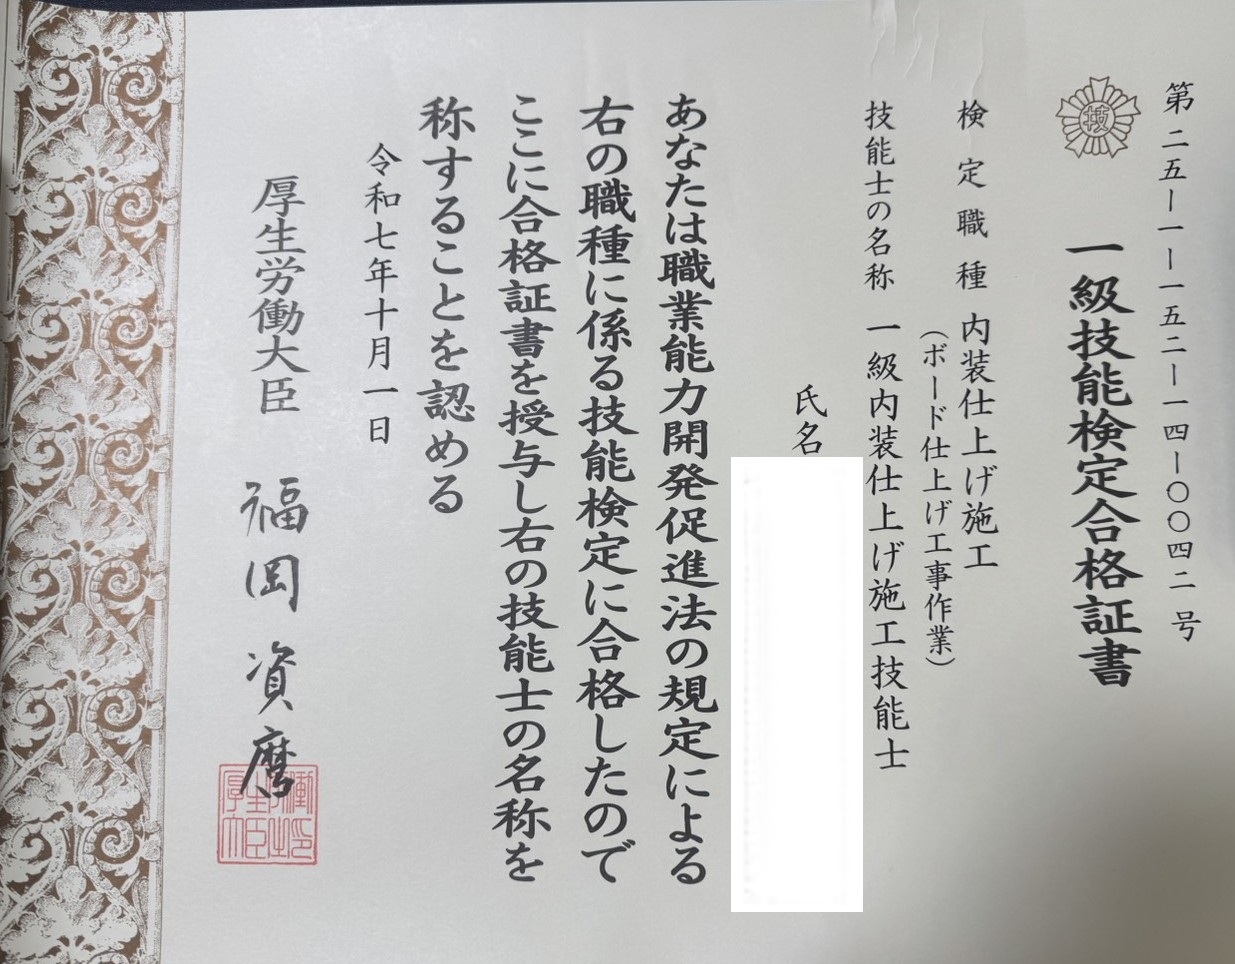 第二五ー一ー一五二ー一四ー〇〇四二号
技
一級技能検定合格証書
検定職種 内装仕上げ施工
(ボード仕上げ工事作業)
技能士の名称 一級内装仕上げ施工技能士
氏名
あなたは職業能力開発促進法の規定による
右の職種に係る技能検定に合格したので
ここに合格証書を授与し右の技能士の名称を
称することを認める
令和七年十月一日
厚生労働大臣 福岡資麿
厚生労働大臣之印